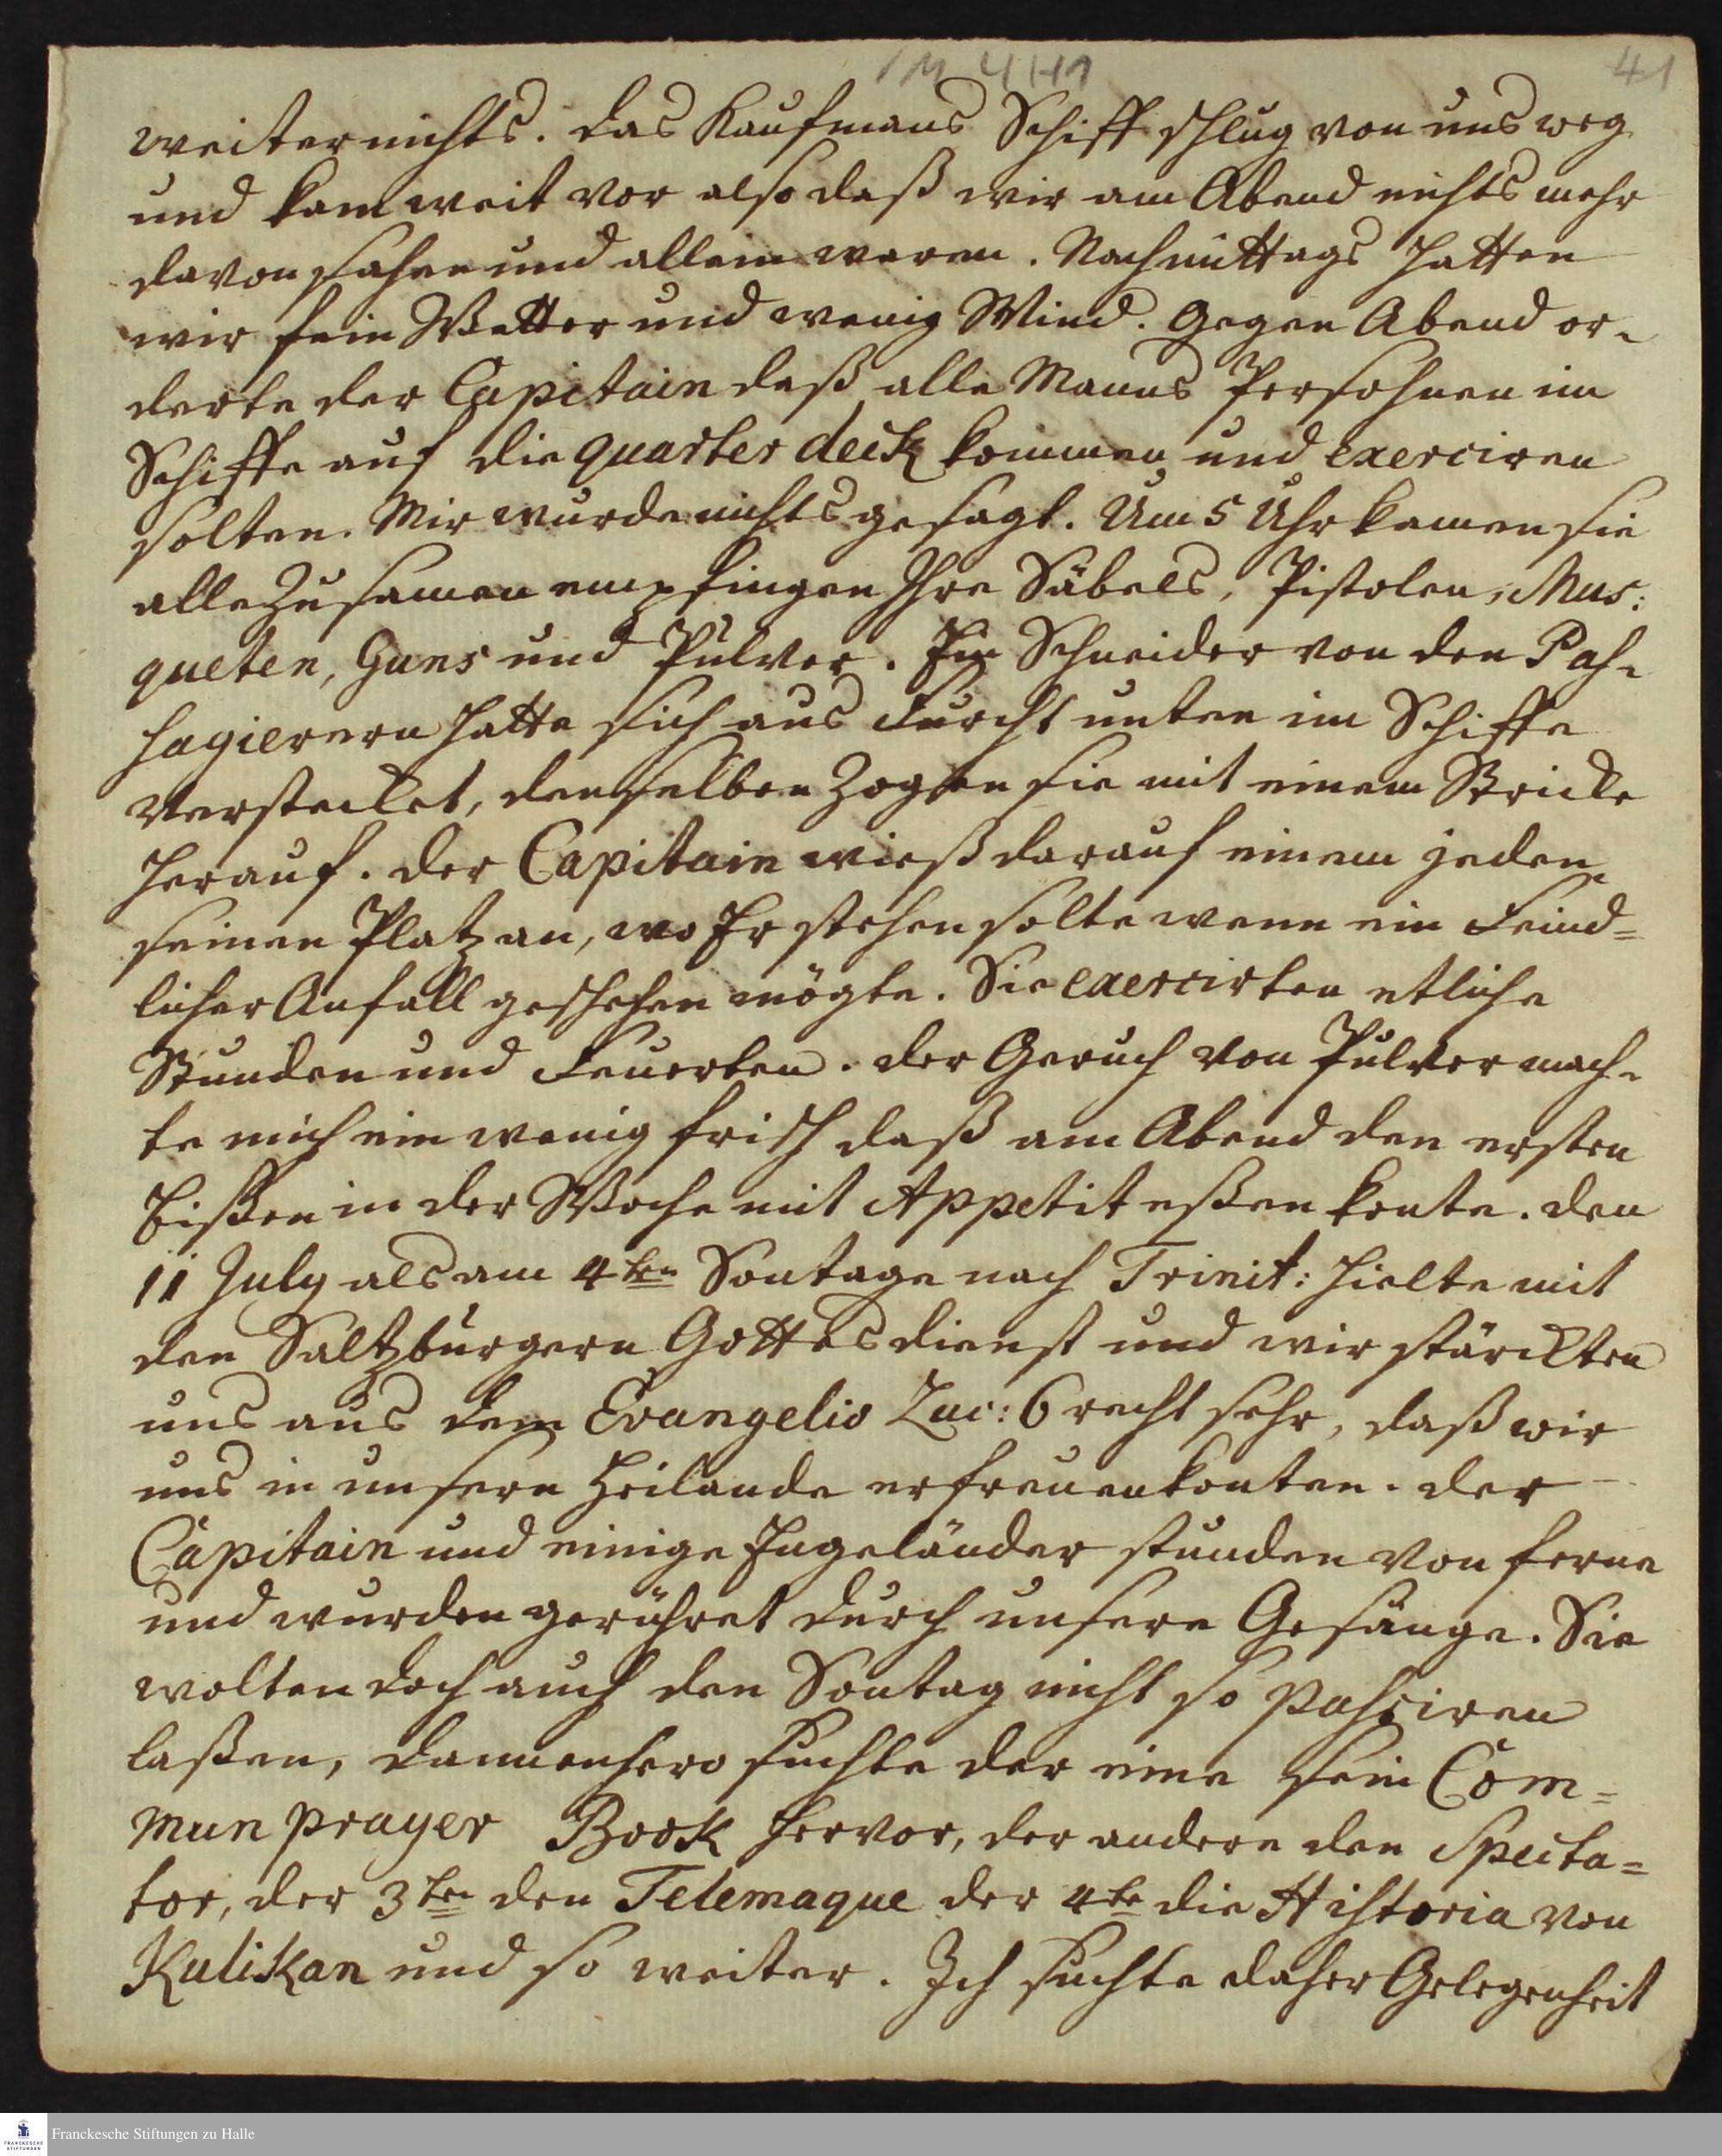 1M 4 H1
41
weiter nichts. das Kaufmans Schiff schlug von uns weg
und kam weit vor also daß wir am Abend nichts mehr
davon sahen und allein waren. Nachmittags hatten
wir fein Wetter und wenig Wind. Gegen Abend or-
derte der Capitain daß alle Manns Persohnen im
Schiffe auf die quarter deck kommen und exerciren
solten. Mir wurde nichts gesagt. Um 5 Uhr kamen sie
alle zusamen empfingen Ihre Säbels, Pistolen, Mus:
queten, Guns und Pulver. Ein Schneider von den Pas-
sagierern hatte sich aus Furcht unten im Schiffe
verstecket, denselben zogen sie mit einem Stricke
herauf. der Capitain wieß darauf einem jeden
seinen Platz an, wo Er stehen solte wenn ein Feind=
licher Anfall geschehen mögte. Sie exercirten etliche
Stunden und Feuerten. der Geruch von Pulver mach-
te mich ein wenig frisch daß am Abend den ersten
Bißen in der Woche mit Appetit eßen konte. den
11 July als am 4ten Sontage nach Trinit: hielte mit
den Saltzburgern Gottesdienst und wir stärckten
uns aus dem Evangelio Luc: 6 recht sehr, daß wir
uns in unsern Heilande erfreuen konten. der
Capitain und einige Engeländer stunden von ferne
und wurden gerühret durch unsere Gesänge. Sie
wolten doch auch den Sontag nicht so passiren
laßen, dannenhero suchte der eine sein Com=
mun prayer Book hervor, der andere den Specta=
tor, der 3te den Telemaque der 4te die Historia von
Kulikan und so weiter. Ich suchte daher Gelegenheit
FRANCKESCHE
STIFTUNGEN
Franckesche Stiftungen zu Halle